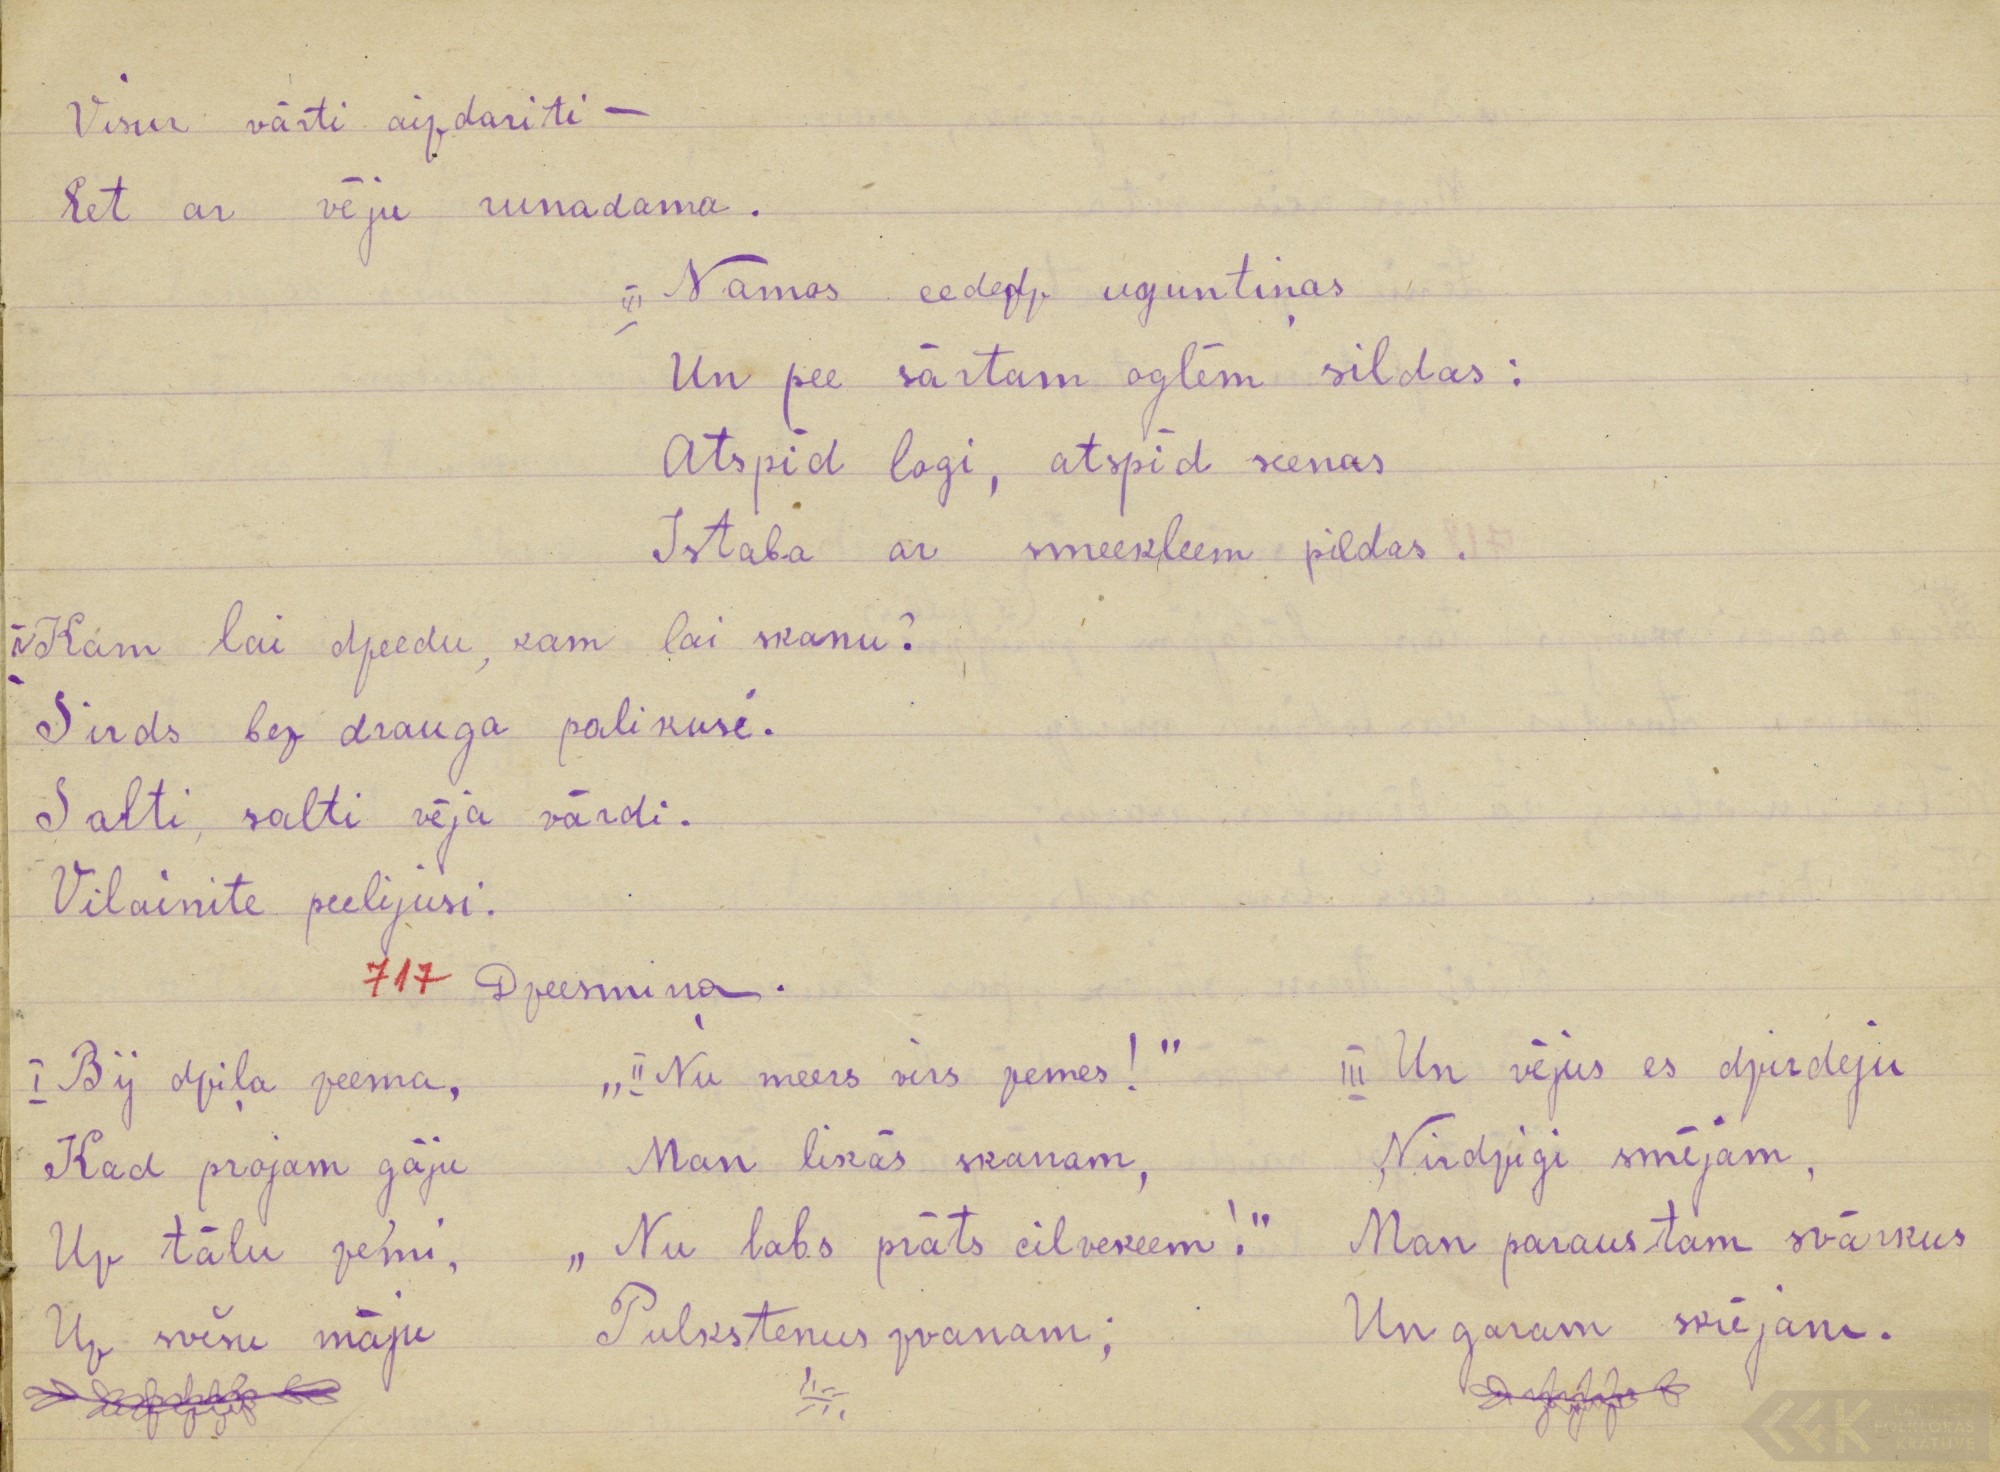 Visur vārti aizdariti —
Eet ar vēju runadama.
III Namos eededz uguntiņas
Un pee sārtam oglēm sildas:
Atspīd logi, atspīd seenas
Istaba ar smeekleem pildas.
IV Kam lai dzeedu, kam lai skanu?
Sirds bez drauga palikusē.
Salti, salti vēja vārdi.
Vilainite peelijusi.
717 Dzeesmiņa.
I Bij dziļa zeema,
Kad projam gāju
Uz tālu zemi,
Uz svešu māju
„II Nu meers virs zemes!"
Man likās skanam,
„Nu labs prāts cilvekeem!"
Pulkstenus zvanam;
III Un vējus es dzirdeju
Nirdzigi smējam,
Man paraustam svārkus
Un garam skrējam.